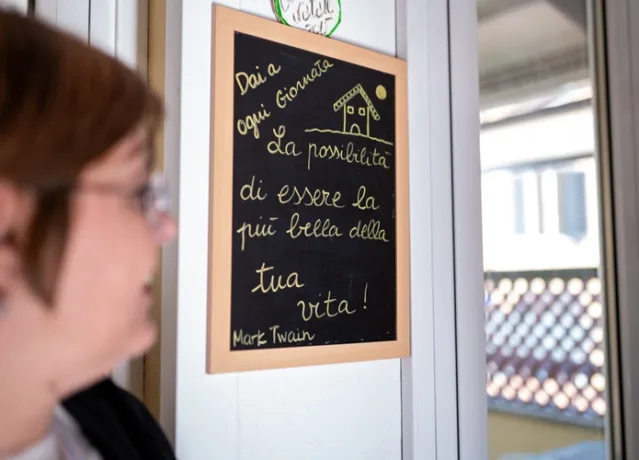 Dai a
ogni Giornata
La possibilità
di essere la
più bella della
tua
vita!
Mark Twain